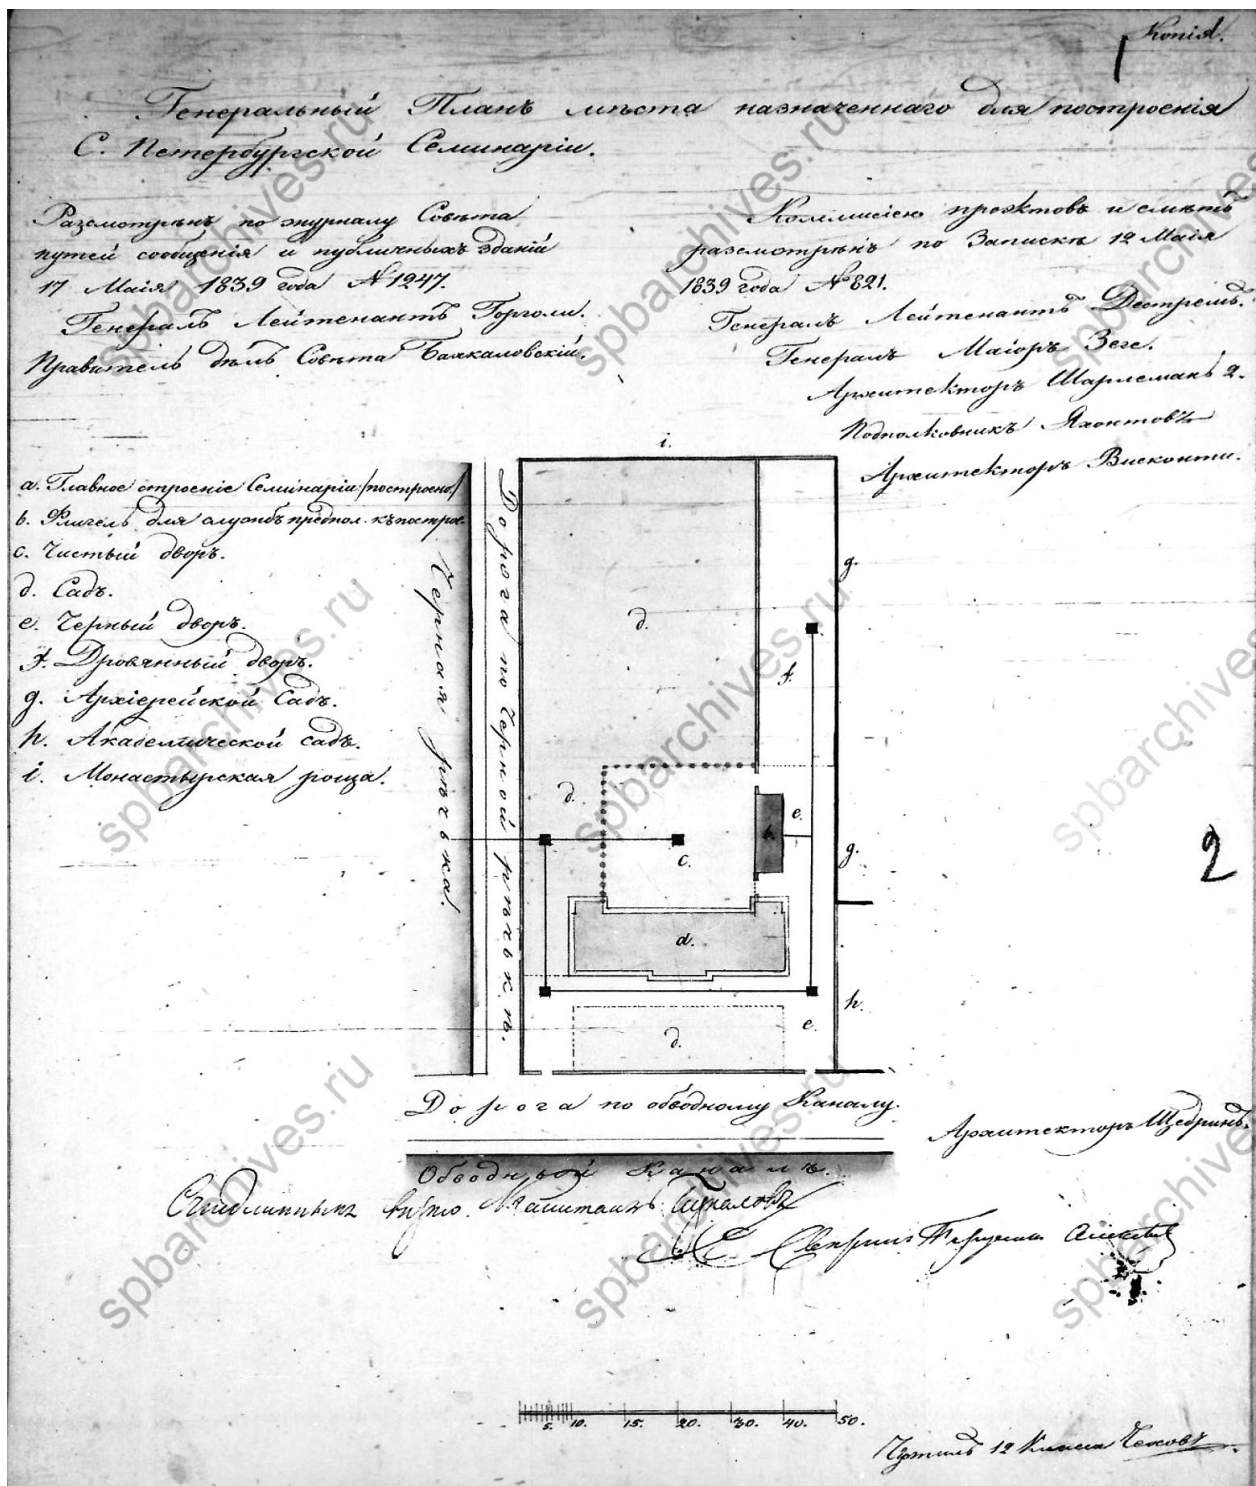 Копія.
Генеральный Планъ мѣста назначеннаго для построенія
С. Петербургской Семинаріи.
Разсмотрѣнъ по журналу Совѣта
путей сообщенія и публичныхъ зданій
17 Маія 1839 года №1247.
Генералъ Лейтенантъ Горголи.
Правитель дѣлъ Совѣта Баккаловскій.
Коммисіею проэктовъ и смѣтъ
разсмотрѣнъ по Запискѣ 12 Маія
1839 года №821.
Генералъ Лейтенантъ Дестремъ.
Генералъ Маіоръ Зеге.
Архитекторъ Шарлеманъ 2.
Подполковникъ Яхонтовъ
Архитекторъ Висконти.
a. Главное строеніе Семинаріи /построено/
b. Флигель для службъ предпол. къ построе.
c. Чистый дворъ.
d. Садъ.
e. Черный дворъ.
f. Дровянный дворъ.
g. Архіерейской Садъ.
h. Академической садъ.
i. Монастырская роща.
Черная рѣчька.
Дорога по Черной рѣчькѣ.
i.
g.
d.
f.
d.
e.
b.
c.
g.
a.
h.
e.
d.
2
Дорога по обводному Каналу.
Обводный Каналъ.
Архитекторъ Щедринъ.
Съ подлиннымъ вѣрно.
5. 10. 15. 20. 30. 40. 50.
Чертилъ 12 Класса Чеховъ
spbarchives.ru
spbarchives.ru
spbarchives.ru
spbarchives.ru
spbarchives.ru
spbarchives.ru
spbarchives.ru
spbarchives.ru
spbarchives.ru